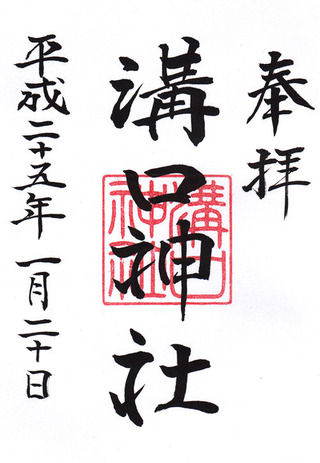 奉拝
溝口神社
溝口神社
平成二十五年一月二十日